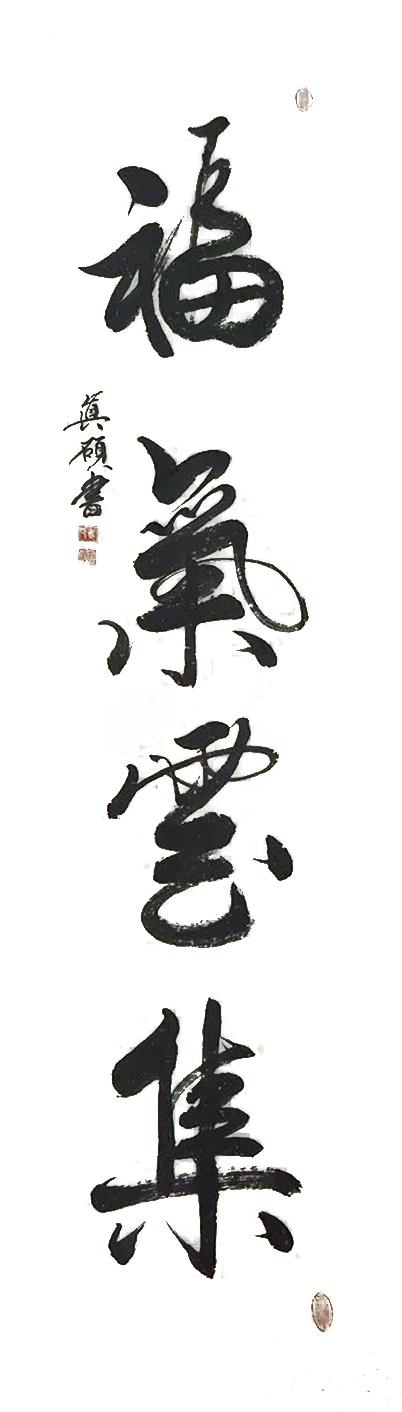 福氣雲集
真碩書